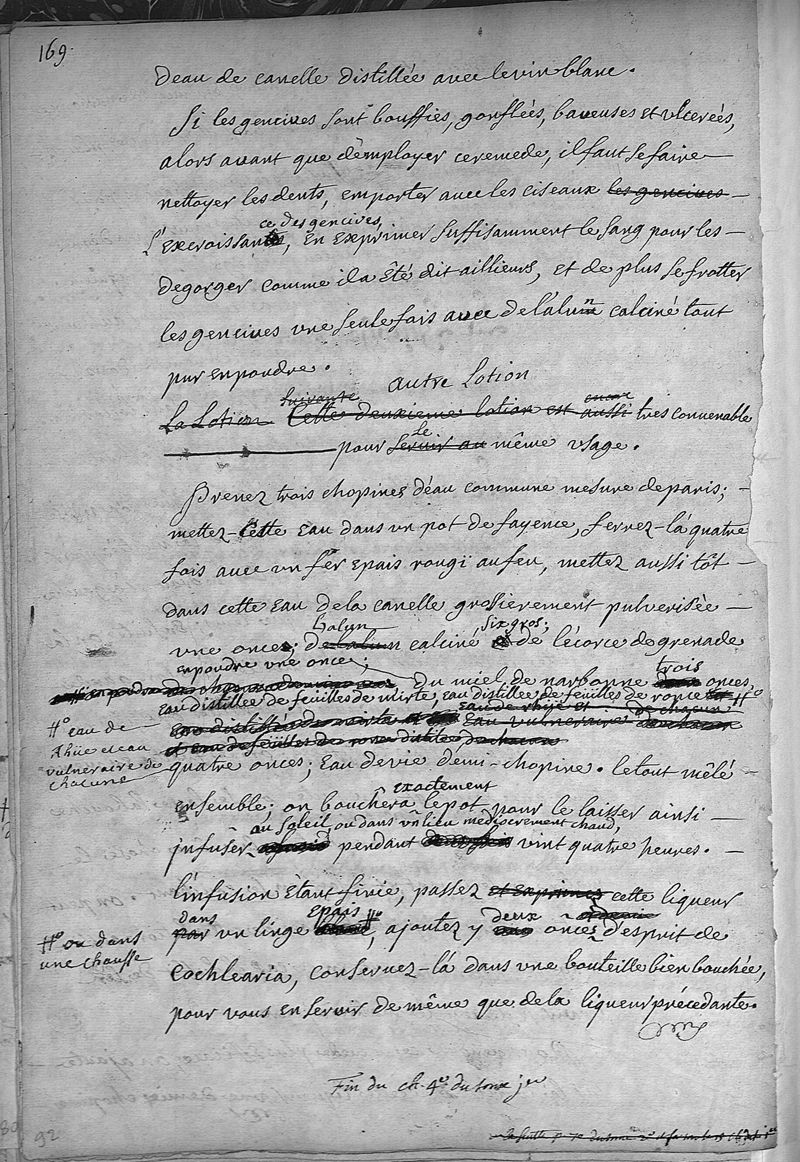 169.
d'eau de canelle distillée avec le vin blanc.
Si les gencives sont bouffies, gonflées, baveuses et ulcerées,
alors avant que d'employer ce remede, il faut se faire
nettoyer les dents, emporter avec les ciseaux les gencives
ce des gencives,
l'excroissance, en exprimer suffisamment le sang pour les
degorger comme il a êté dit aillieurs, et de plus se frotter
les gencives une seule fois avec de l'alun calciné tout
pur en poudre.
autre Lotion
suivante encor
La Lotion Cette deuxieme lotion est aussi tres convenable
le
pour servir au même usage.
Prenez trois chopines d'eau commune mesure de paris;
mettez cette eau dans un pot de fayence, ferrez-là quatre
fois avec un fer epais rougï au feu, mettez aussi tôt
dans cette eau de la canelle grossierement pulverisée
l'alun six gros;
une once; de l'alun calciné de l'écorce de grenade
en poudre une once; trois
du miel de narbonne onces,
eau distillée de feuilles de mirte, eau distillée de feuilles de ronce #o
eau de rhüe et de chacun
eau vulneraire de chacun
et eau de feuilles de ronce distilée de chacun
#o eau de
Rhüe et eau
vulneraire de
chacune
quatre onces; eau de vie demi-chopine. le tout mêlé
exactement
ensemble; on bouchêra le pot pour le laisser ainsi
au soleil, ou dans un lieu mediocrement chaud,
infusêr pendant vint quatre heures.
l'infusion êtant finie, passez et exprimez cette liqueur
dans epais #o deux
par un linge, ajoutez y onces d'esprit de
#o ou dans
une chausse
Cochlearia, conservez-là dans une bouteille bien bouchée,
pour vous en servir de même que de la liqueur précedante.
Fin du ch. 4e du tome 1er
92